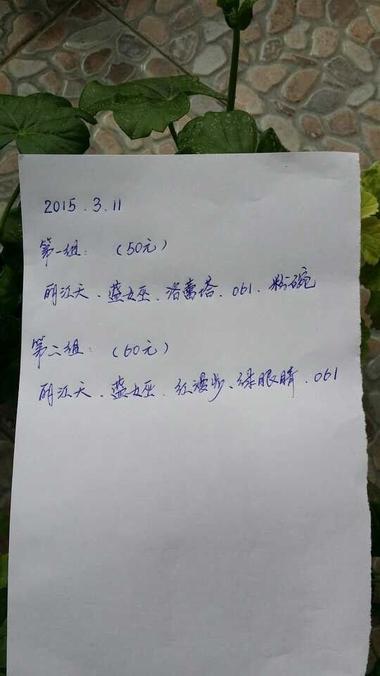 2015.3.11
第一组：（50元）
丽江天、蓝女巫、洛蕾塔、061、粉碗
第二组：（60元）
丽江天、蓝女巫、红漫步、绿眼睛、061